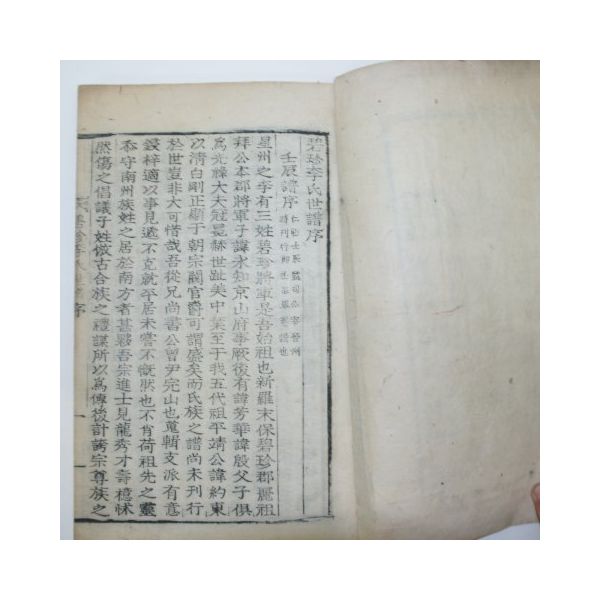 碧珍李氏世譜序
壬辰譜序
星州之李有三姓碧珍將軍是吾始祖也新羅末保碧珍郡麗祖
拜公本郡將軍子諱永知京山府事厥後有諱芳華諱殷父子俱
爲光祿大夫冠冕赫世趾美中葉至于我五代祖平靖公諱約東
以淸白剛正顯于朝宗閥官爵可謂盛矣而氏族之譜尚未刊行
於世豈非大可惜哉吾從兄尚書公曾尹完山也蒐輯支派有意
鋟梓適以事見遞不克就平居未嘗不慨狀也不肖荷祖先之靈
忝守南州族姓之居於南方者甚夥吾宗進士見龍秀才壽檍怵
然傷之倡議子姓倣古合族之禮謀所以爲傳後計訪宗尊族之